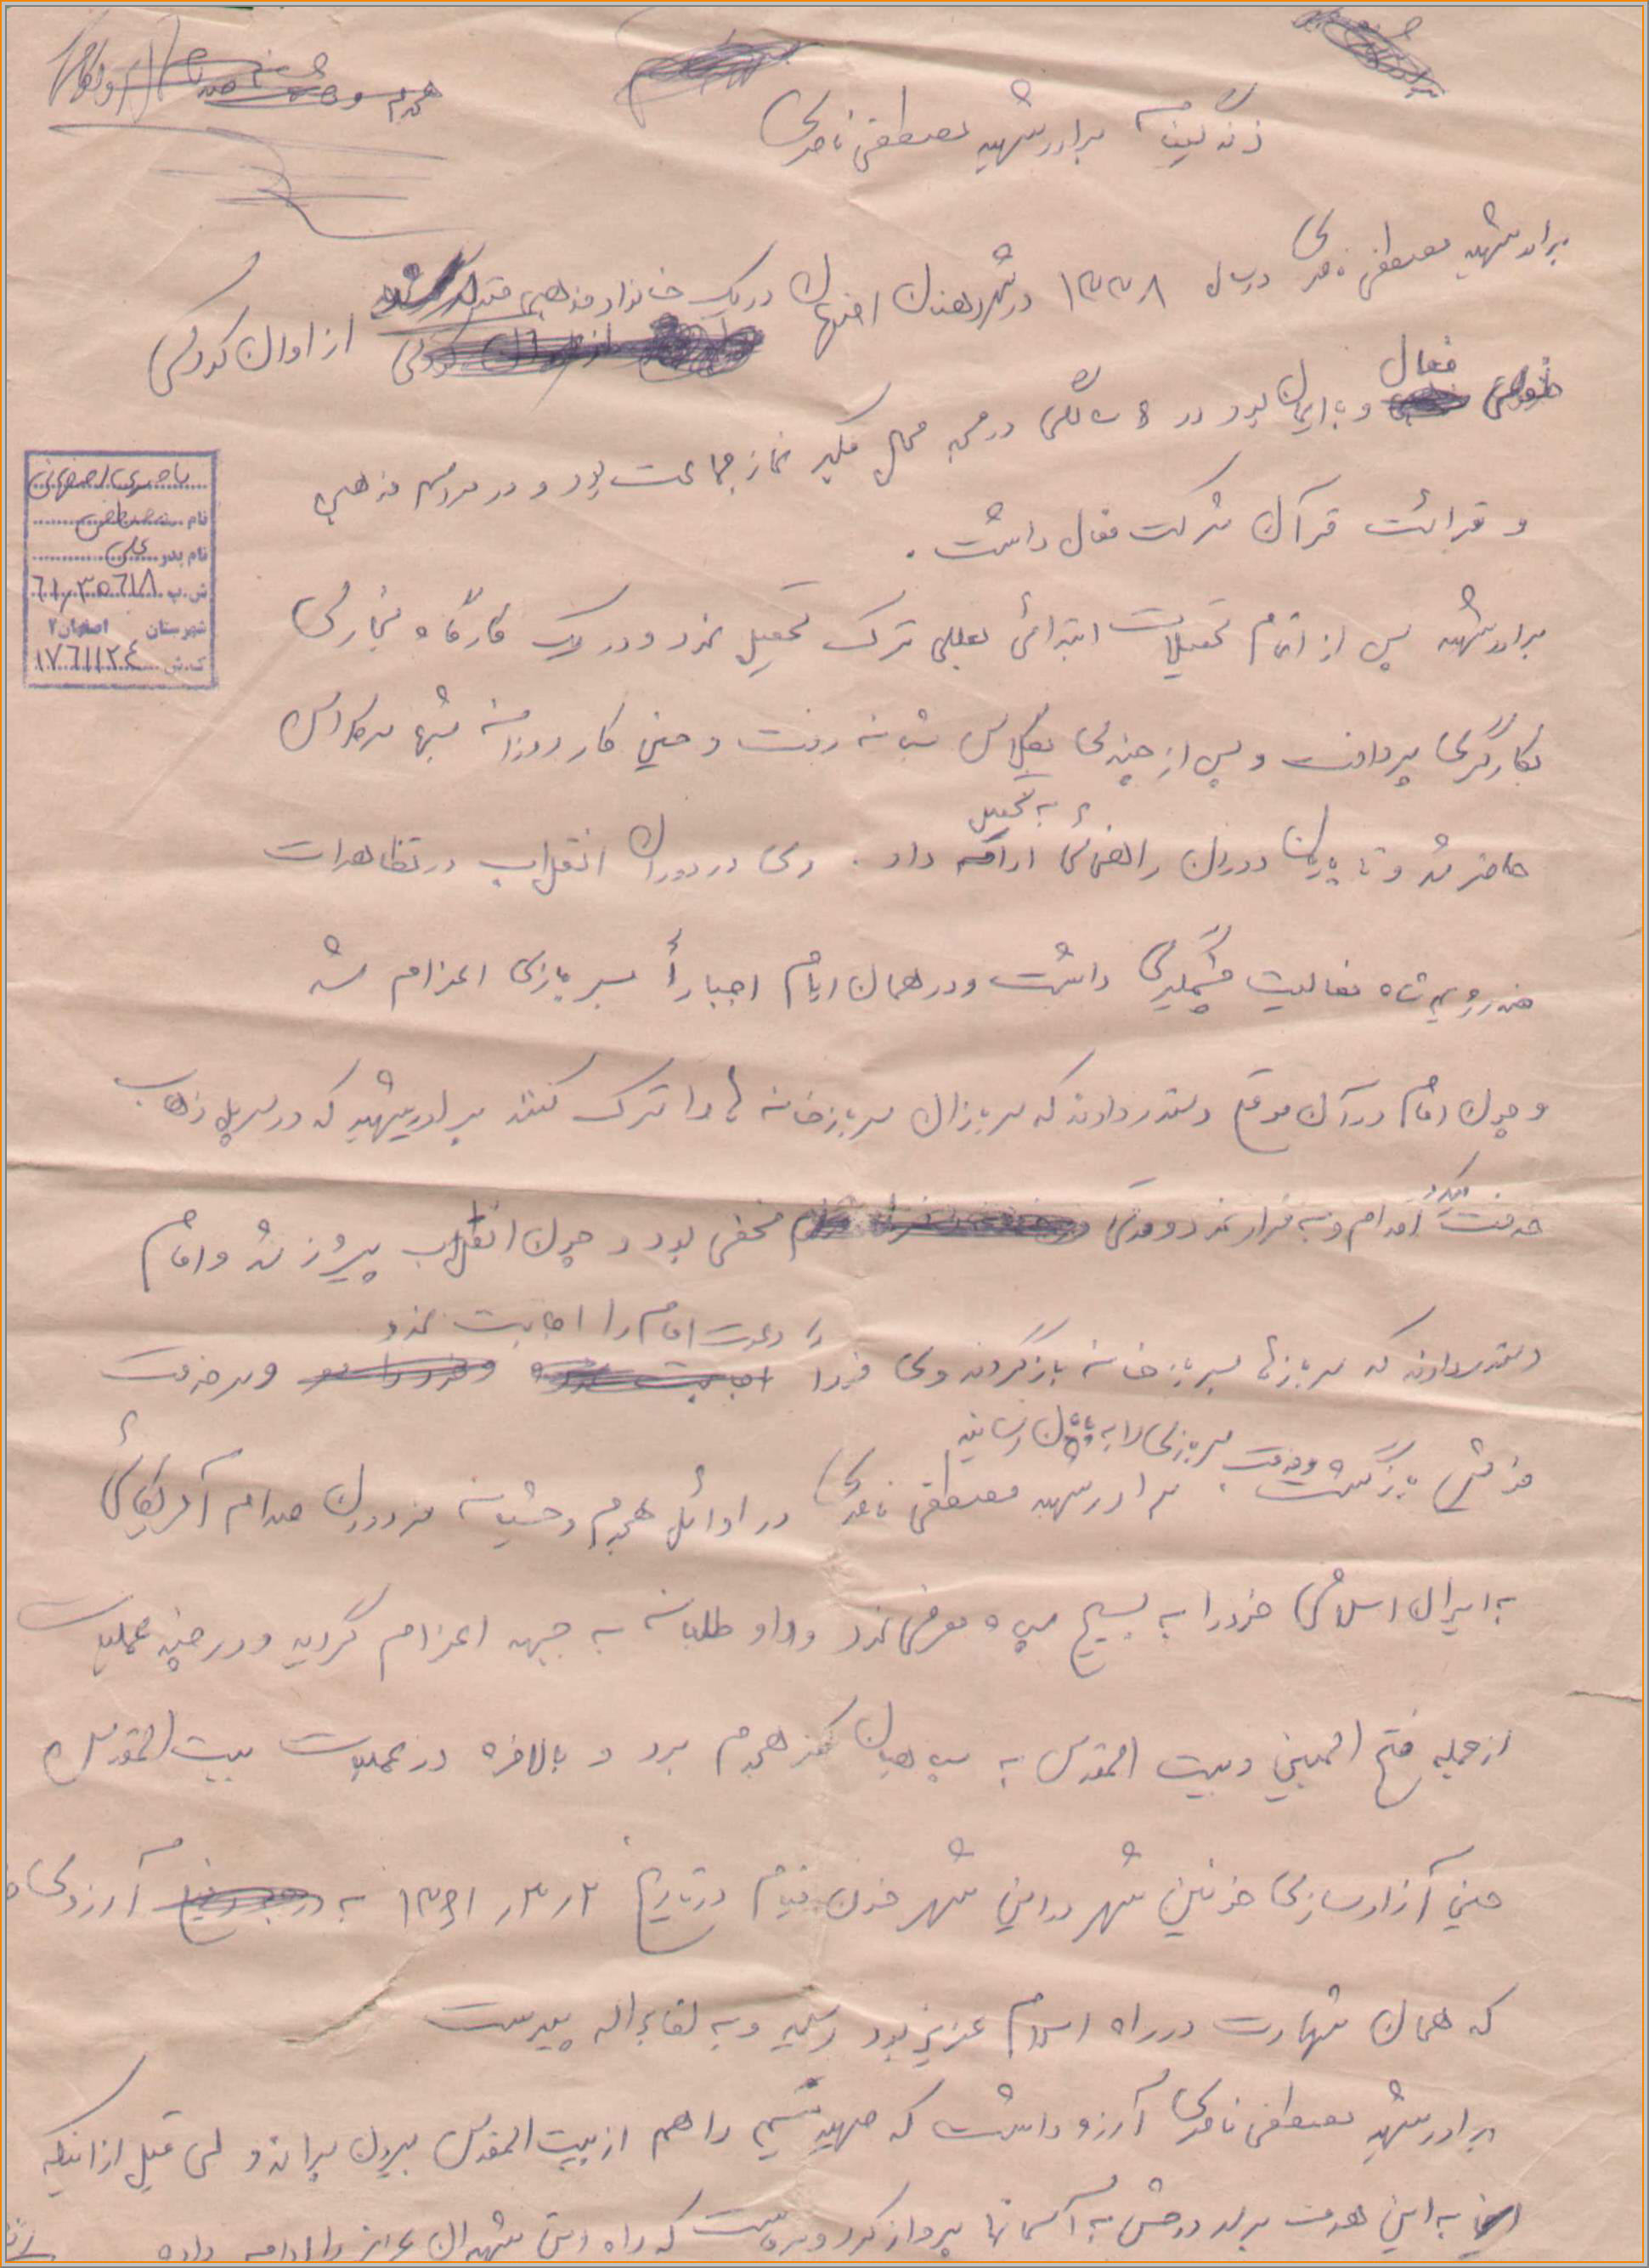 زندگینامه برادر شهید مصطفی ناصری
برادر شهید مصطفی ناصری در سال ۱۳۳۸ در شهر اصفهان در یک خانواده مذهبی متولد شد از اوان کودکی
فعال و با ایمان بود در ۹ سالگی در مسجد محل مکبر نماز جماعت بود و در مراسم مذهبی
و قرائت قرآن شرکت فعال داشت.
ناصری اصفهانی
نام مصطفی
نام پدر علی
ش.پ ۶۱٫۳۵۶۱۸
شهرستان اصفهان۲
ک.ش ۱۷۶۱۱۲۴
برادر شهید پس از اتمام تحصیلات ابتدائی بعللی ترک تحصیل نمود و در یک کارگاه نجاری
بکارگری پرداخت و پس از چندی بکلاس شبانه رفت و حین کار روزانه شبها سر کلاس
حاضر شد و تا پایان دوران راهنمائی به تحصیل ادامه داد. وی در دوران انقلاب در تظاهرات
ضد رژیم شاه فعالیت چشمگیری داشت و در همان ایام اجباراً بسربازی اعزام شد
و چون امام در آن موقع دستور دادند که سربازان سربازخانه ها را ترک کنند برادر شهید که در سرپل ذهاب
خدمت میکرد اقدام به فرار نمود و مدتی مخفی بود و چون انقلاب پیروز شد و امام
دستور دادند که سربازها بسربازخانه بازگردند وی فوراً دعوت امام را اجابت نمود و سر خدمت
خویش بازگشت و خدمت سربازی را به پایان رسانید. برادر شهید مصطفی ناصری در اوائل هجوم وحشیانه مزدوران صدام آمریکائی
به ایران اسلامی خود را به بسیج سپاه معرفی نمود و داوطلبانه به جبهه اعزام گردید و در چند عملیات
از جمله فتح المبین و بیت المقدس به سپاهیان کفر هجوم برد و بالاخره در عملیات بیت المقدس
حین آزادسازی خونین شهر در این شهر خون و قیام در تاریخ ۲ر۳ر۱۳۶۱ به آرزوی
که همان شهادت در راه اسلام عزیز بود رسید و به لقاء الله پیوست
برادر شهید مصطفی ناصری آرزو داشت که صهیونیسم را هم از بیت المقدس بیرون براند ولی قبل از اینکه
به این هدف برسد روحش به آسمانها پرواز کرد و که راه این شهیدان عزیز را ادامه داده